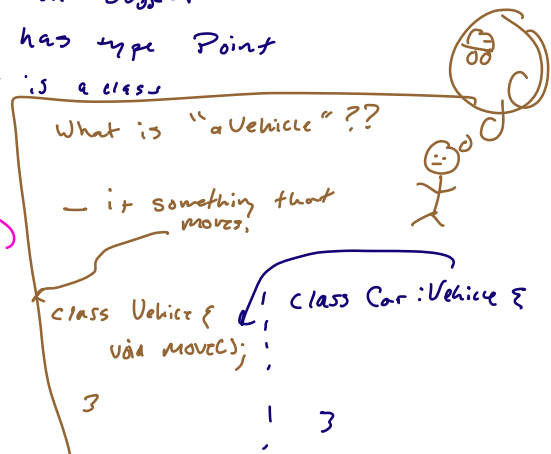 has type Point
is a class
What is "a Vehicle"??
— it something that
moves.
class Vehicle { class Car : Vehicle {
void move();
} }